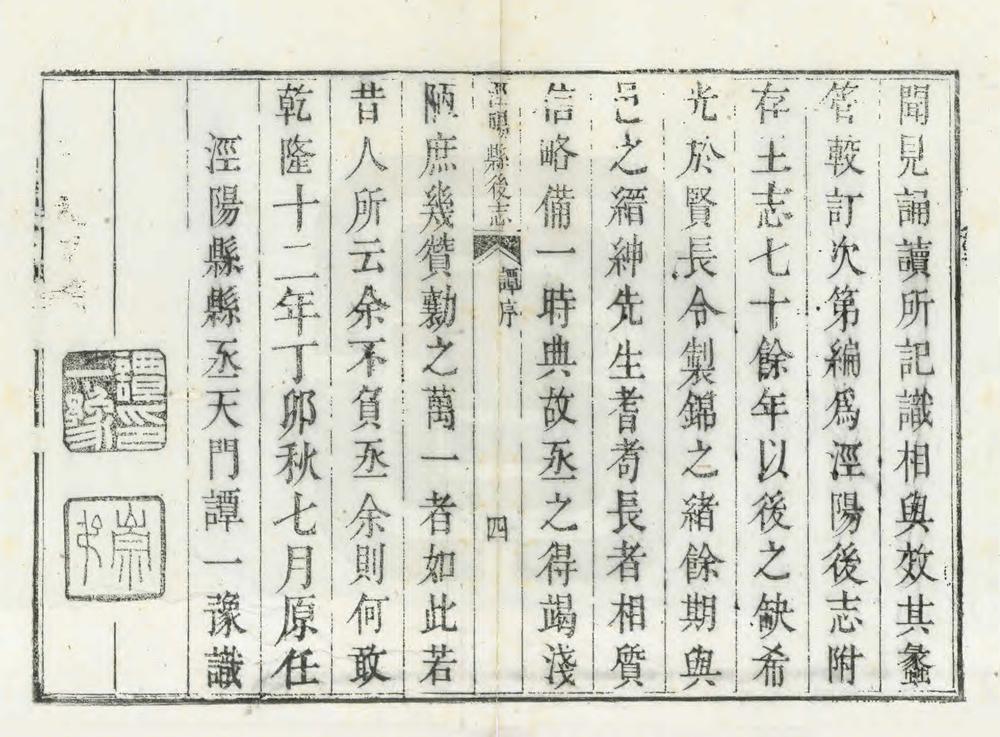 聞見誦讀所記識相與效其蠡
管較訂次第編爲涇陽後志附
存土志七十餘年以後之缺希
光於賢長令製錦之緒餘期與
邑之縉紳先生耆耈長者相質
信略備一時典故丞之得竭淺
涇陽縣後志 譚序 四
陋庶幾贊勷之萬一者如此若
昔人所云余不負丞余則何敢
乾隆十二年丁卯秋七月原任
涇陽縣縣丞天門譚一豫識
譚印一豫